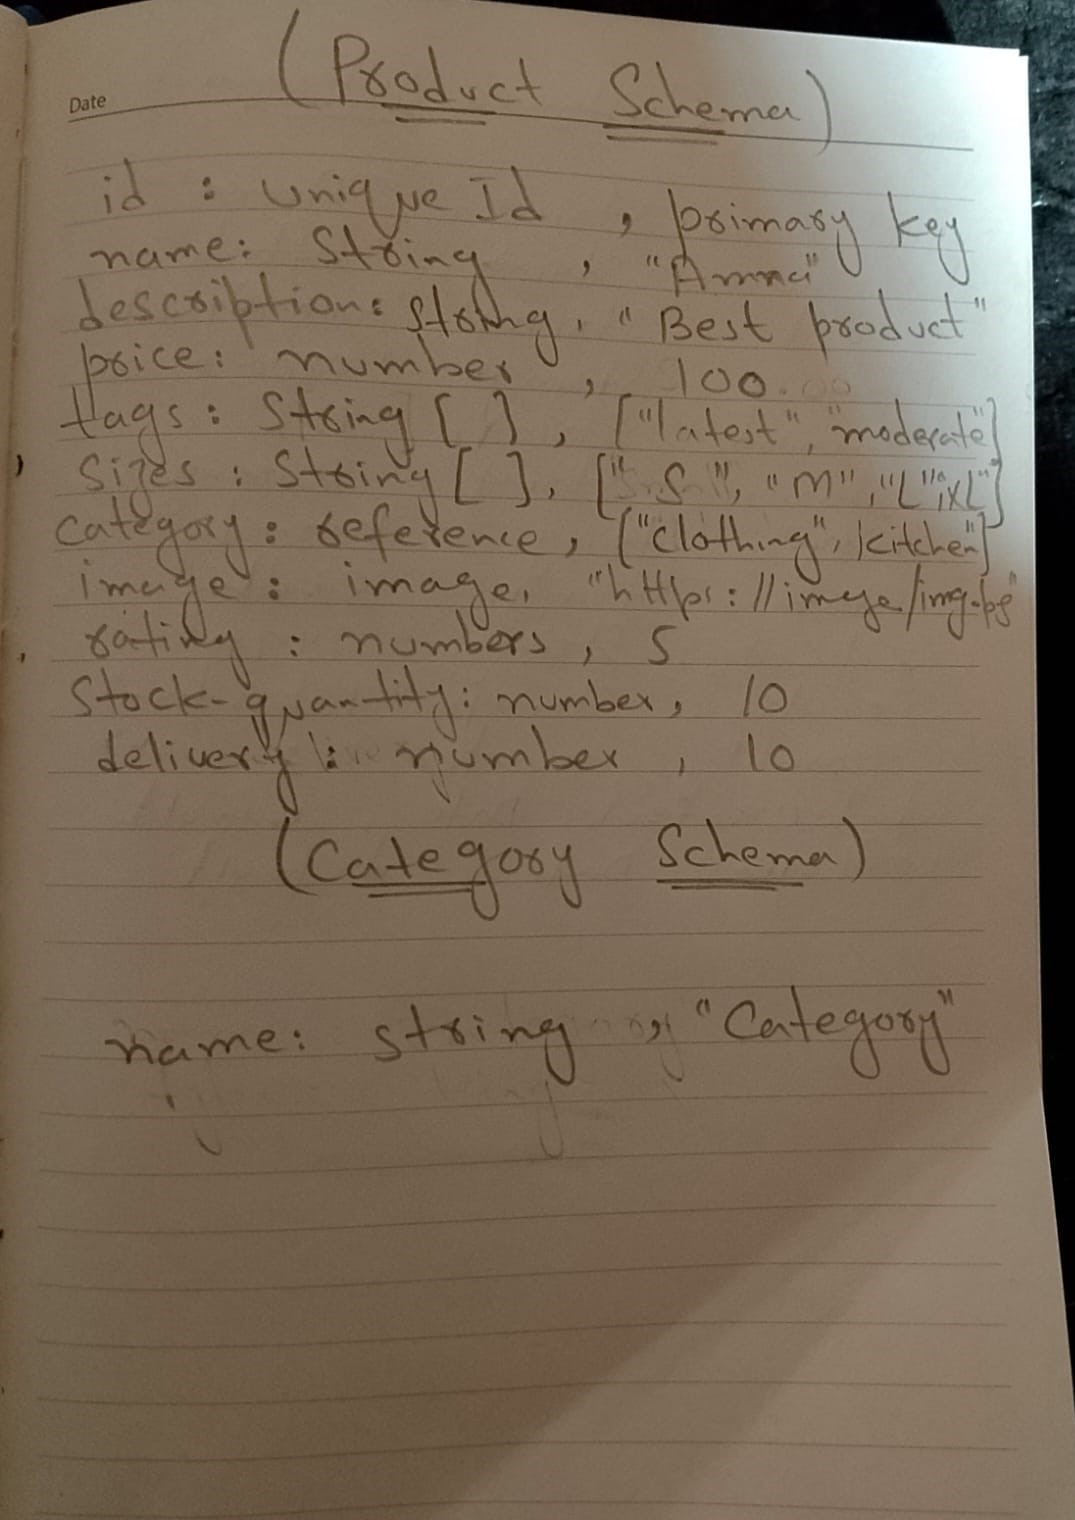 Date
(Product Schema)
id : unique Id , primary key
name: String , "Amna"
description: string, "Best product"
price: number , 100
tags: String [ ], ["latest", "moderate"]
Sizes : String [ ], ["S", "M", "L", "XL"]
category: reference, ["clothing", kitchen"]
image: image,
rating : numbers , 5
Stock-quantity: number, 10
delivery : number , 10
(Category Schema)
name: string , "Category"